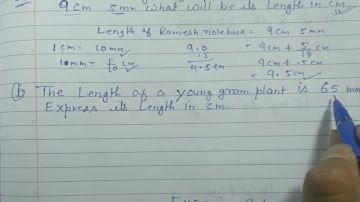 9 cm 5mm what will be its length in cm
Length of Ramesh notebook = 9cm 5mm
1 cm = 10mm 9.0 = 9cm + 5/10
10mm = cm .5 9cm + .5cm
9.5cm = 9.5cm
(b) The Length of a young gram plant is 65 mm
Express its Length in cm